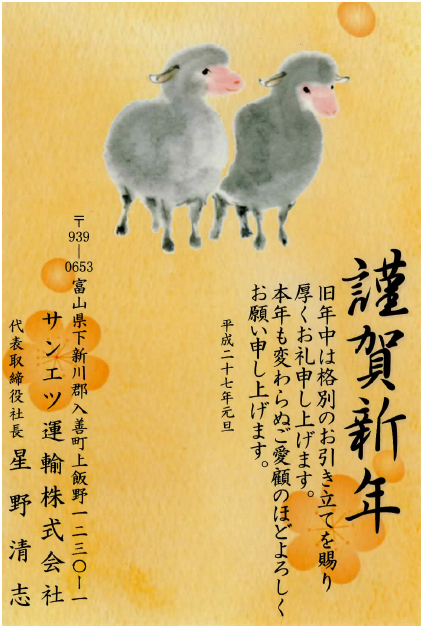 謹賀新年
旧年中は格別のお引き立てを賜り
厚くお礼申し上げます。
本年も変わらぬご愛顧のほどよろしく
お願い申し上げます。
平成二十七年元旦
〒939-0653
富山県下新川郡入善町上飯野一二三〇ー一
サンエツ運輸株式会社
代表取締役社長 星野清志